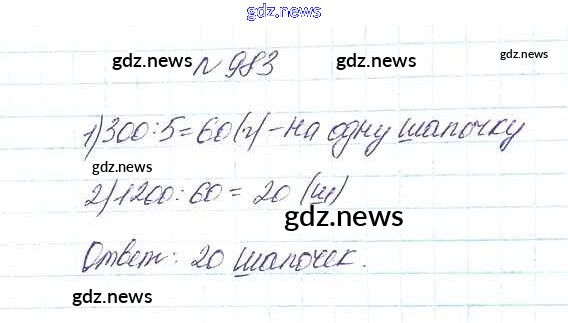 gdz.news
№ 983
gdz.news gdz.news gdz.news
1) 300:5=60(г)-на одну шапочку
gdz.news
2) 1200:60=20 (ш)
gdz.news
Ответ: 20 шапочек.
gdz.news gdz.news